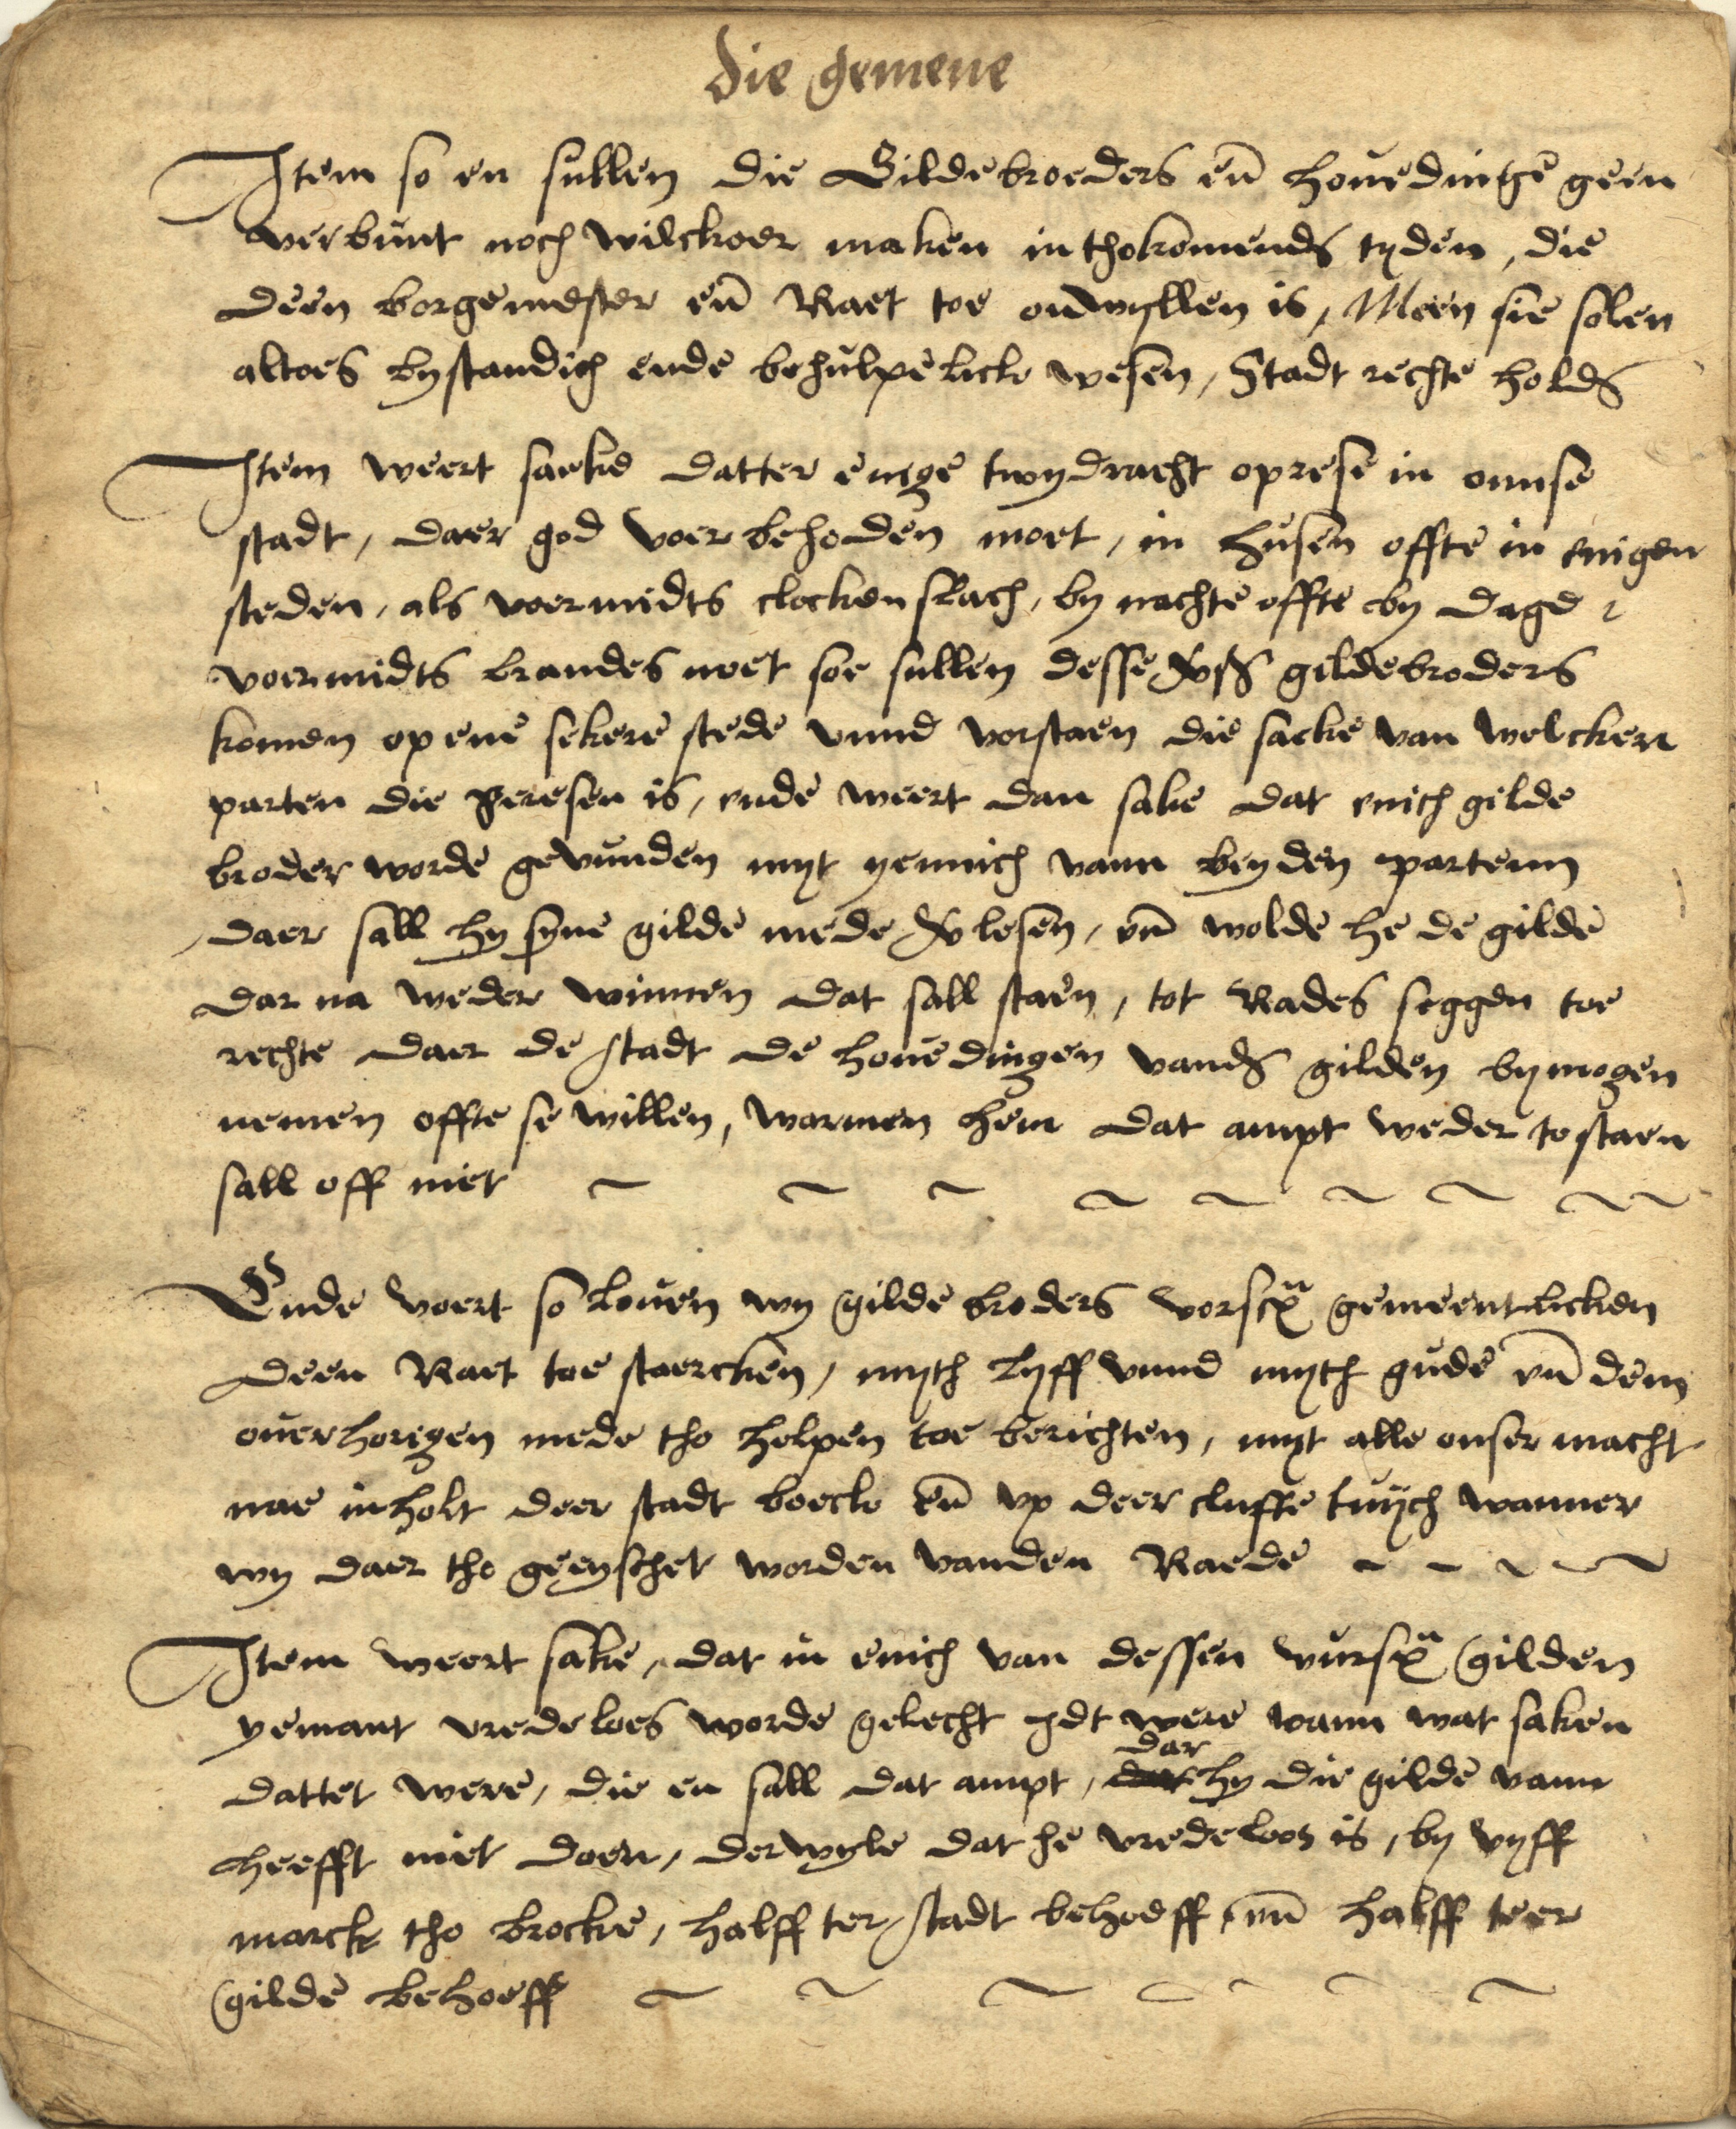 die gemene
Item so en sullen die Gildebroeders eñ houedingē geen
verbunt noch wilckoer maken in thokomendē tyden, die
deen borgemester eñ Raet toe ondwyllen is, Meen sie solen
altoes bystandich ende behulpelick wesen, Stadt rechte holdē
Item weert sacke datter enige twydracht oprese in onnse
stadt, daer god voer behoden moet, in husen offte in enigen
steden, als voermidts clocken slach, by nachte offte by dage
voermidts brandes noet soe sullen desse gildebroders
komen op ene sekere stede vnnd vorstaen die sacke van welcken
parten die geresen is, ende weert dan sake dat enich gilde
broder worde gevunden myt yennich vann beyden partenn
daer sall hy syne gilde mede v̄lesen, vñ wolde he de gilde
dar na weder winnen dat sall staen, tot Rades seggen toe
rechte daer de stadt de houedingen vandē gilden by mogen
nemen offte se willen, warmen hem dat ampt weder to staen
sall off niet
Ende voert so louen wy gilde broders vorscr̃ gemeentlicken
deen Raet toe staercken, myth lyff vnnd myth gude vñ dem
ouerhorigen mede tho helpen toe berichten, myt alle onser macht
nae inholt deer stadt boeck eñ vp deer cluffte tuych wanner
wy daer tho geeyschet worden vanden Raede
Item weert sake, dat in enich van dessen vurscr̃ gilden
yemant vredeloes worde gelecht ydt were vann wat saken
dattet were, die en sall dat ampt, dar hy die gilde vann
heefft niet doen, derwyle dat he vredeloos is, by vyff
marck tho brocke, halff ter stadt behoeff, vñ halff teer
gilde behoeff